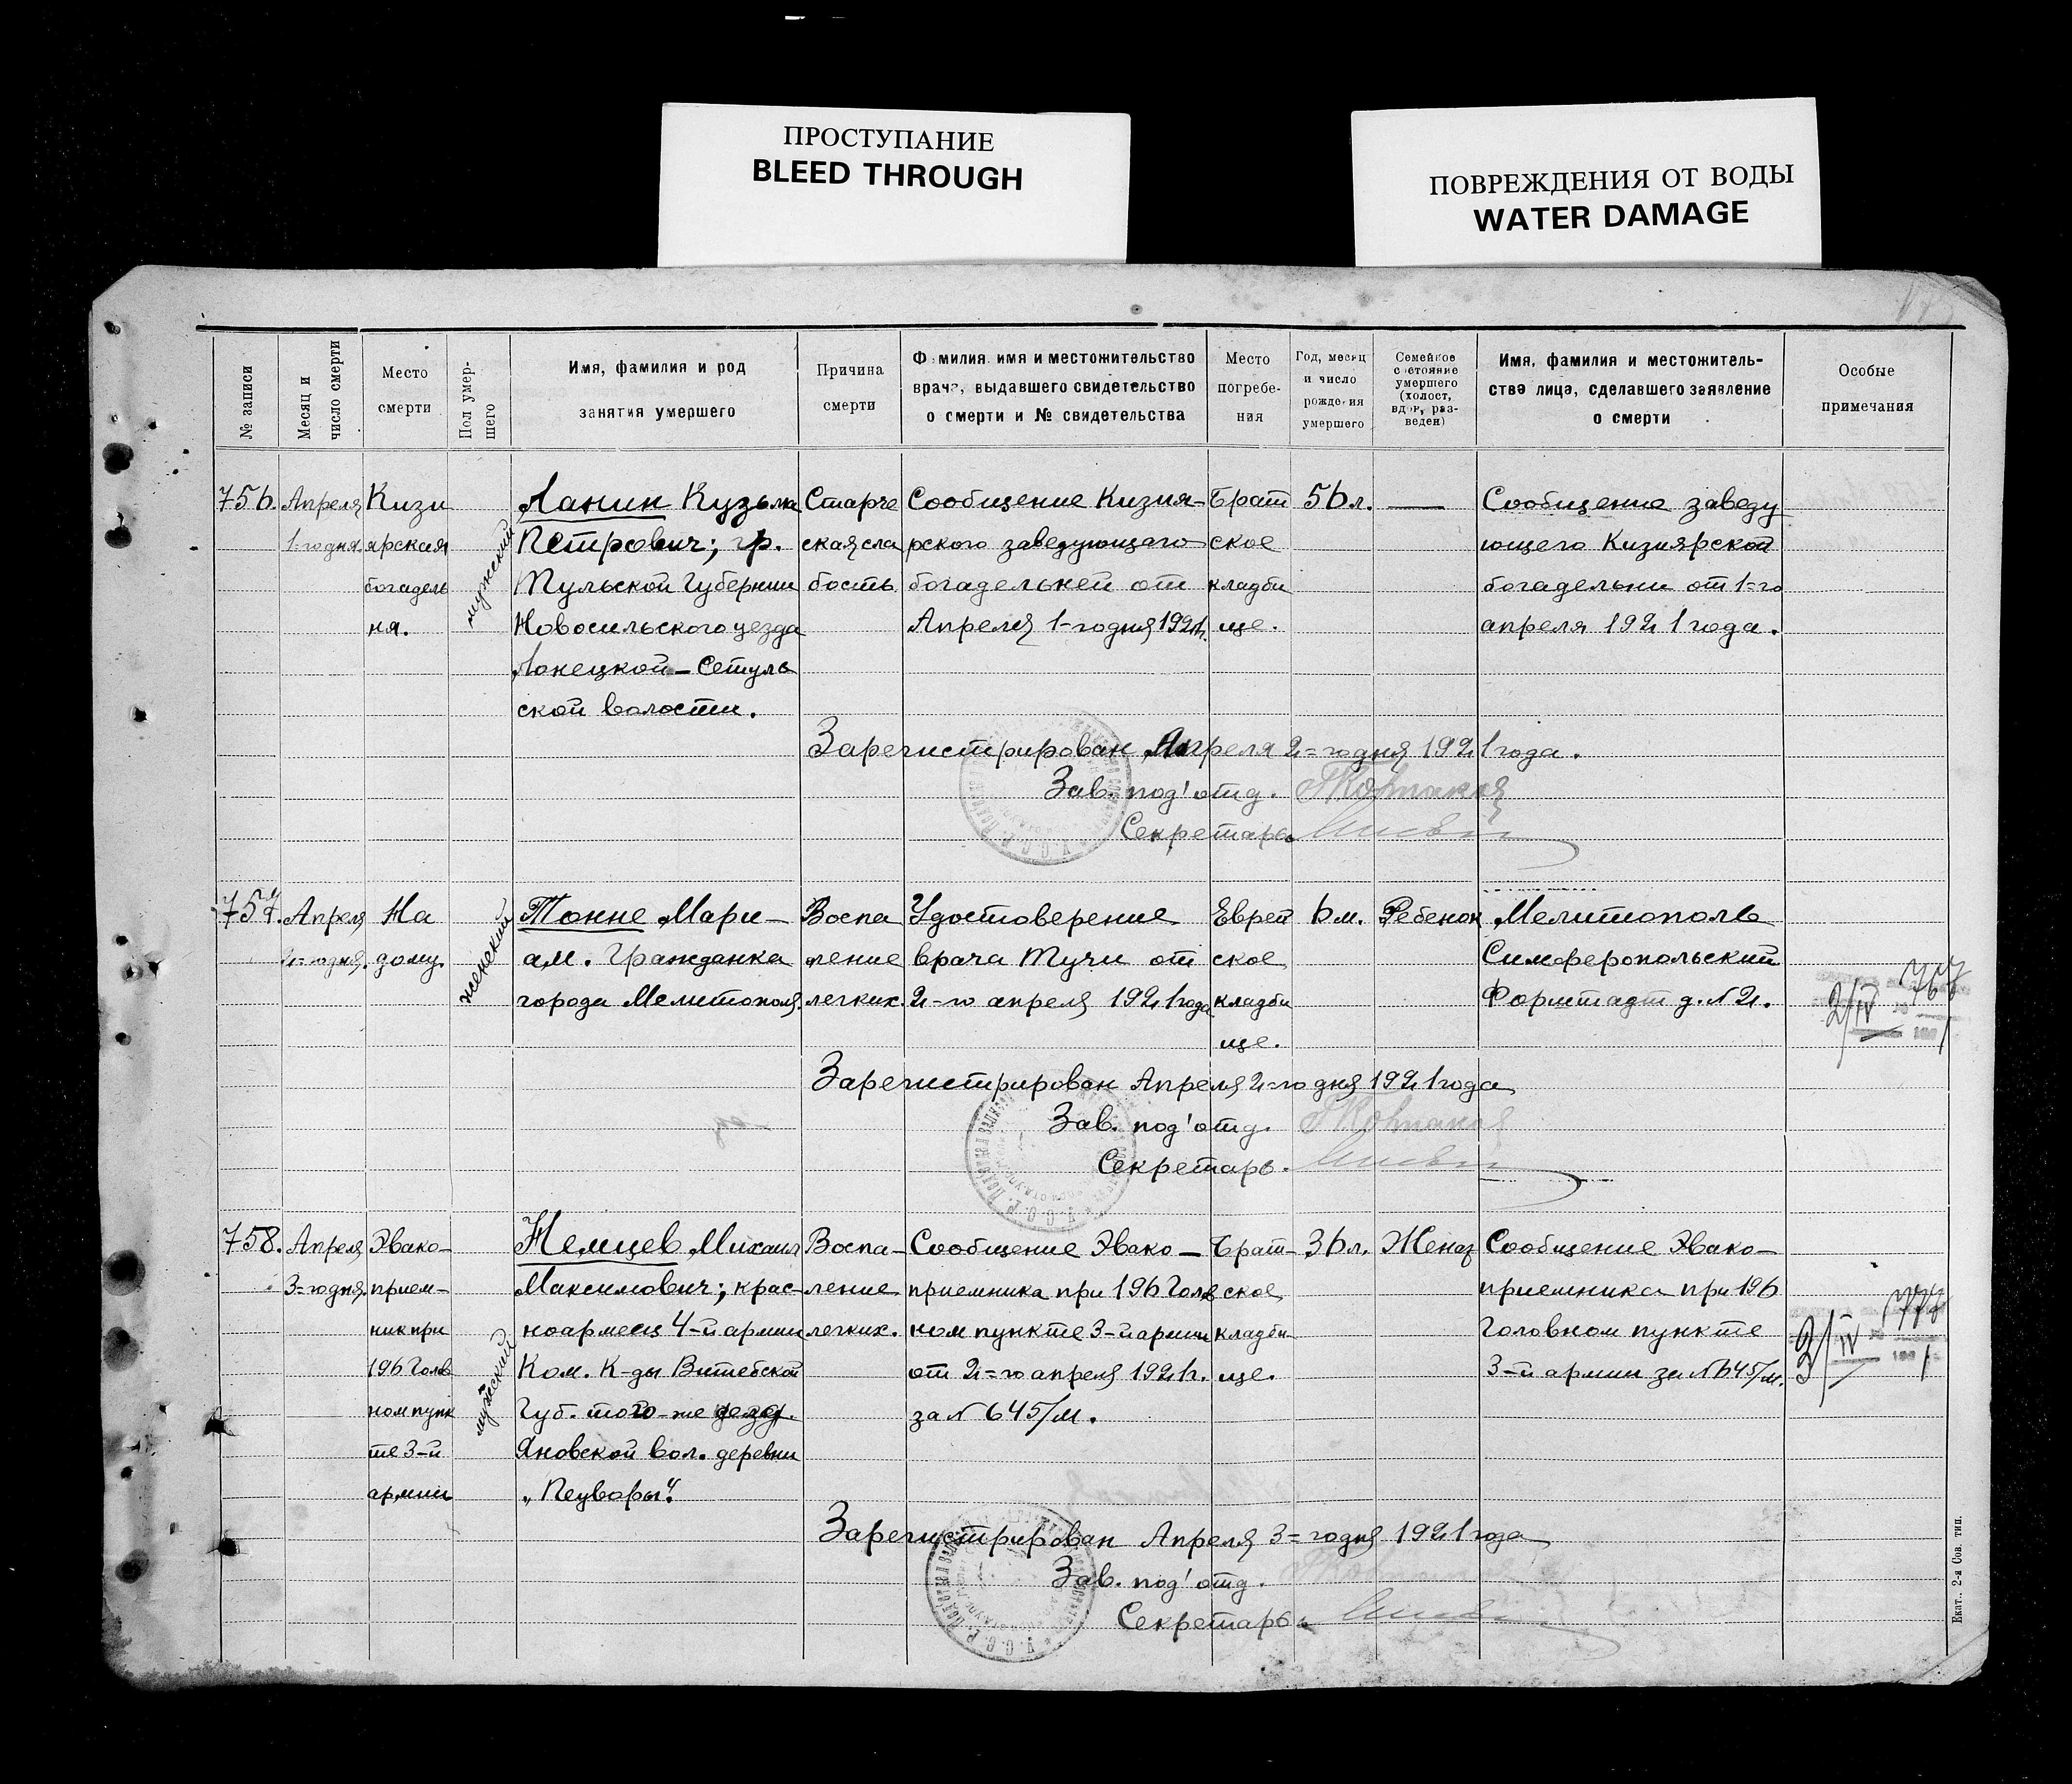 ПРОСТУПАНИЕ
BLEED THROUGH
ПОВРЕЖДЕНИЯ ОТ ВОДЫ
WATER DAMAGE
№ записи
Месяц и
число смерти
Место
смерти
Пол умер-
шего
Имя, фамилия и род
занятия умершего
Причина
смерти
Фамилия имя и местожительство
врача, выдавшего свидетельство
о смерти и № свидетельства
Место
погребе-
ния
Год, месяц
и число
рождения
умершего
Семейное
состояние
умершего
(холост,
вдов, раз-
веден)
Имя, фамилия и местожитель-
ство лица, сделавшего заявление
о смерти
Особые
примечания
756.
Апреля
1-го дня
Кизи
ярская
богадель
ня.
мужский
Ланин Кузьма
Петрович; гр.
Тульской Губернии
Новосильского уезда
Лонецкой-Сетуль
ской волости.
Старче
ская сла
бость
Сообщение Кизия-
рского заведующаго
богадельней от
Апреля 1-го дня 1921г.
Брат
ское
кладби
ще.
56 л.
—
Сообщение заведу
ющего Кизиярской
богадельни от 1-го
апреля 1921 года.
Зарегистрирован Апреля 2=го дня 1921 года.
Зав. под'отд.
Секретарь
757.
Апреля
2-го дня.
На
дому.
женский
Тонне Мари-
ам. Гражданка
города Мелитополя.
Воспа
ление
легких.
Удостоверение
врача Тучи от
2-го апреля 1921 года
Еврей
ское
кладби
ще.
6 м.
Ребенок
Мелитополь
Симферопольский
Форштадт д. № 2.
2/IV
Зарегистрирован Апреля 2=го дня 1921 года
Зав. под'отд.
Секретарь.
758.
Апреля
3=го дня.
Эвако-
прием-
ник при
196 Голов
ном пунк
те 3-й
армии
мужский
Немцев Михаил
Максимович; крас-
ноармеец 4-й армии
Ком. К-ды Витебской
Губ. того-же уезда.
Яновской вол. деревни
„Пеуворы“.
Воспа-
ление
легких.
Сообщение Эвако-
приемника при 196 Голов
ном пункте 3-й армии
от 2=го апреля 1921г.
за № 645/м.
Брат-
ское
кладби-
ще.
36 л.
Женат
Сообщение Эвако-
приемника при 196
Головном пункте
3-й армии за № 645/м.
3/IV
Зарегистрирован Апреля 3=го дня 1921 года
Зав. под'отд.
Секретарь
Екат. 2-я Сов. тип.